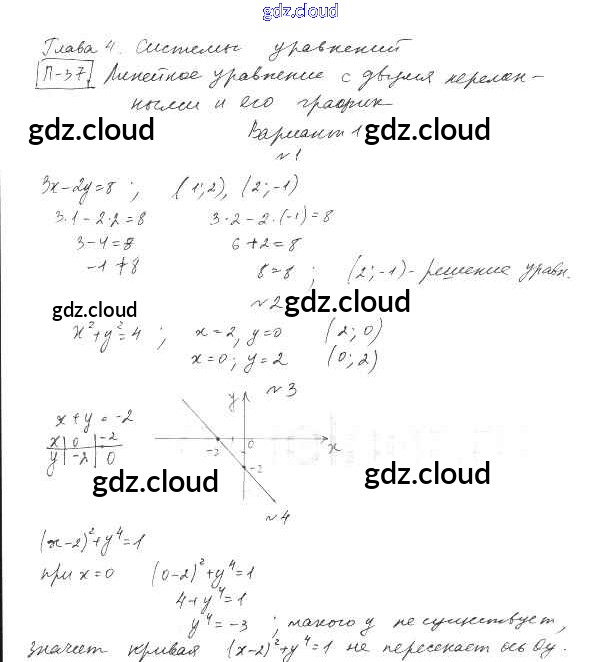 gdz.cloud
Глава 4. Системы уравнений
П-37. Линейное уравнение с двумя перемен-
ными и его график
gdz.cloud Вариант 1 gdz.cloud
№1
3x-2y=8 ; (1;2), (2;-1)
3·1-2·2=8 3·2-2·(-1)=8
3-4=8 6+2=8
-1≠8 8=8 ; (2;-1)-решение уравн.
gdz.cloud №2 gdz.cloud
x²+y²=4 ; x=2, y=0 (2;0)
x=0; y=2 (0;2)
№3
x+y=-2 y
x 0 -2 -2 0 x
y -2 0 -2
gdz.cloud gdz.cloud
№4
(x-2)²+y⁴=1
при x=0 (0-2)²+y⁴=1
gdz.cloud 4+y⁴=1 gdz.cloud
y⁴=-3 ; такого y не существует,
значит кривая (x-2)²+y⁴=1 не пересекает ось Oy.